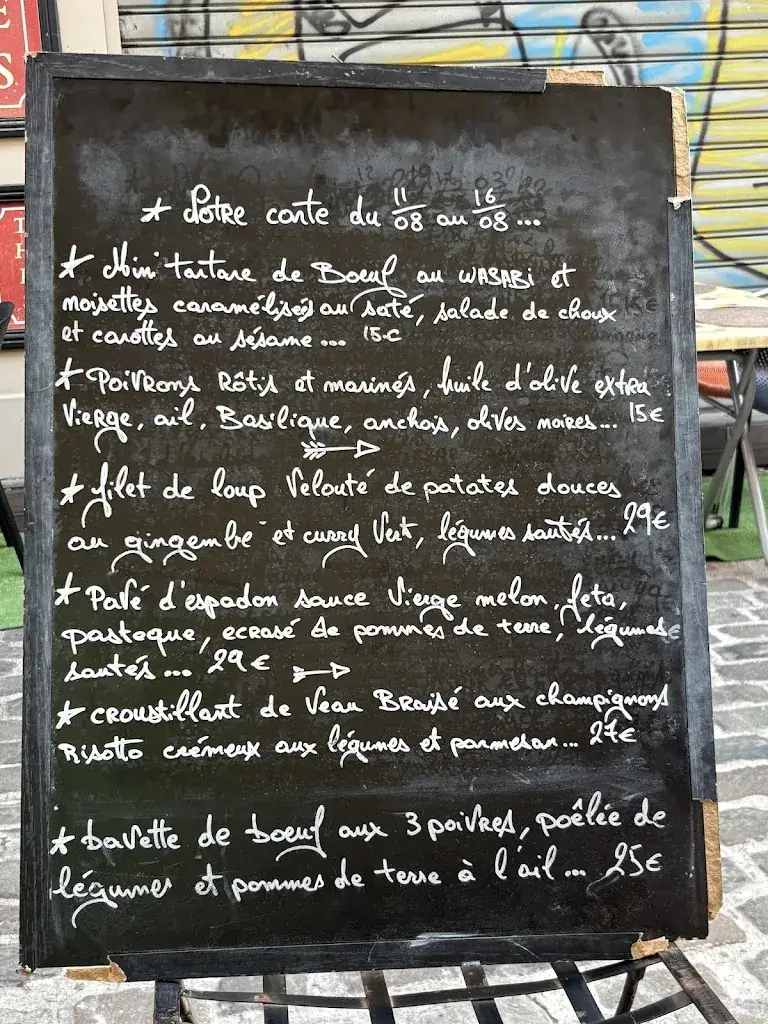 E
S
T
H
* Notre carte du 11/08 au 16/08...
* Mini tartare de Boeuf au WASABi et
noisettes caramélisées au saté, salade de choux
et carottes au sésame ... 15€
* Poivrons Rôtis et marinés, huile d'olive extra
Vierge, ail, Basilique, anchois, olives noires... 15€
* filet de loup Velouté de patates douces
au gingembe et curry Vert, légumes sautés... 29€
* Pavé d'espadon sauce Vierge melon, feta,
pasteque, ecrasé de pommes de terre, légumes
sautés ... 29€
* CROUStillant de Veau BRaisé aux champignons
Risotto crémeux aux légumes et parmesan... 27€
* bavette de boeuf aux 3 poivres, poêlée de
légumes et pommes de terre à l'ail... 25€